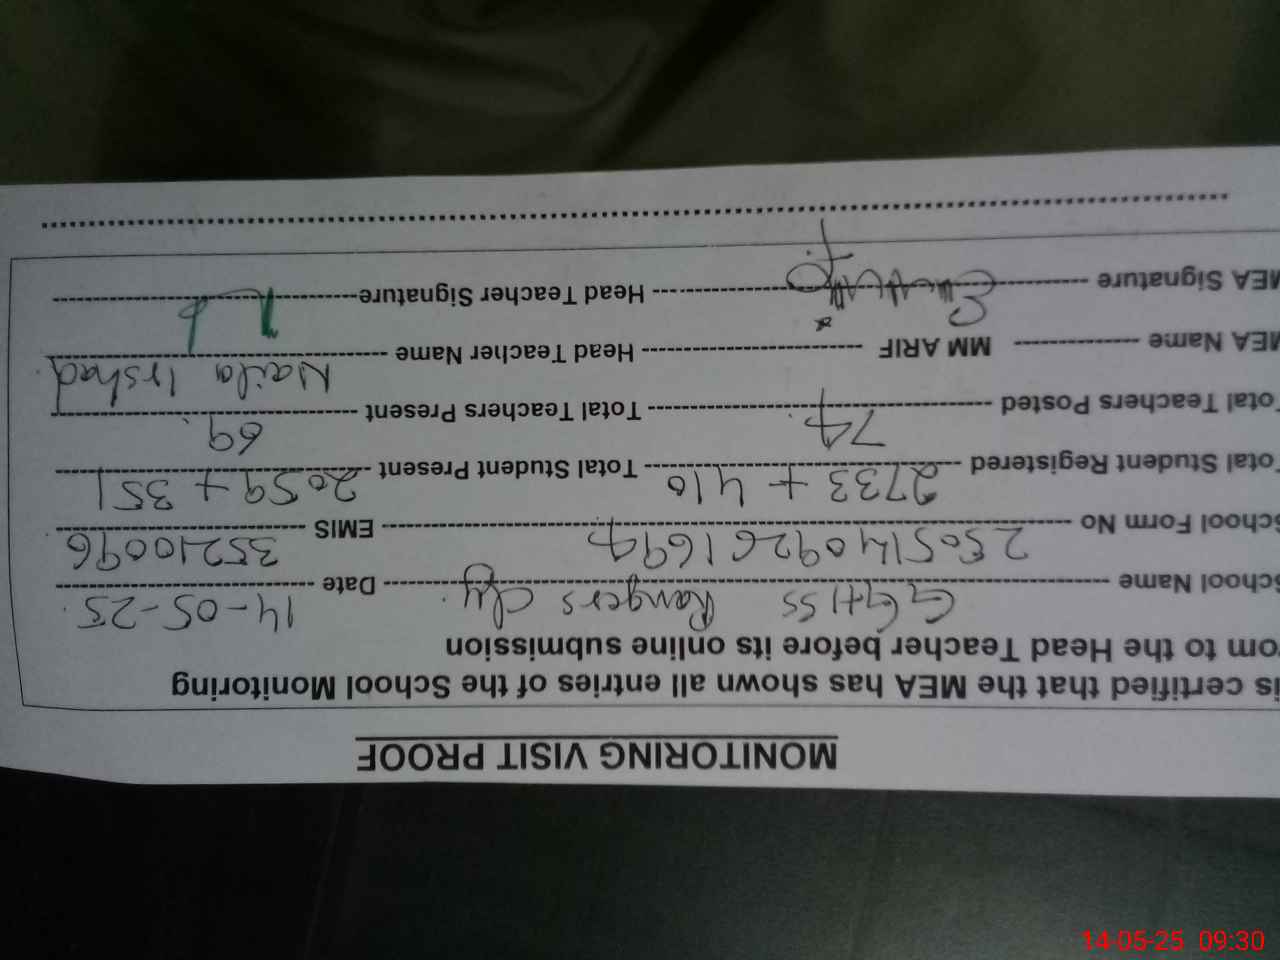 MONITORING VISIT PROOF
is certified that the MEA has shown all entries of the School Monitoring
om to the Head Teacher before its online submission
School Name GGHSS Rangers Date 14-05-25
School Form No EMIS 35210096
Total Student Registered 2733 + 410 Total Student Present 2059 + 351
Total Teachers Posted 74 Total Teachers Present 69
MEA Name MM ARIF Head Teacher Name Naila Irshad
MEA Signature Head Teacher Signature
14-05-25 09:30